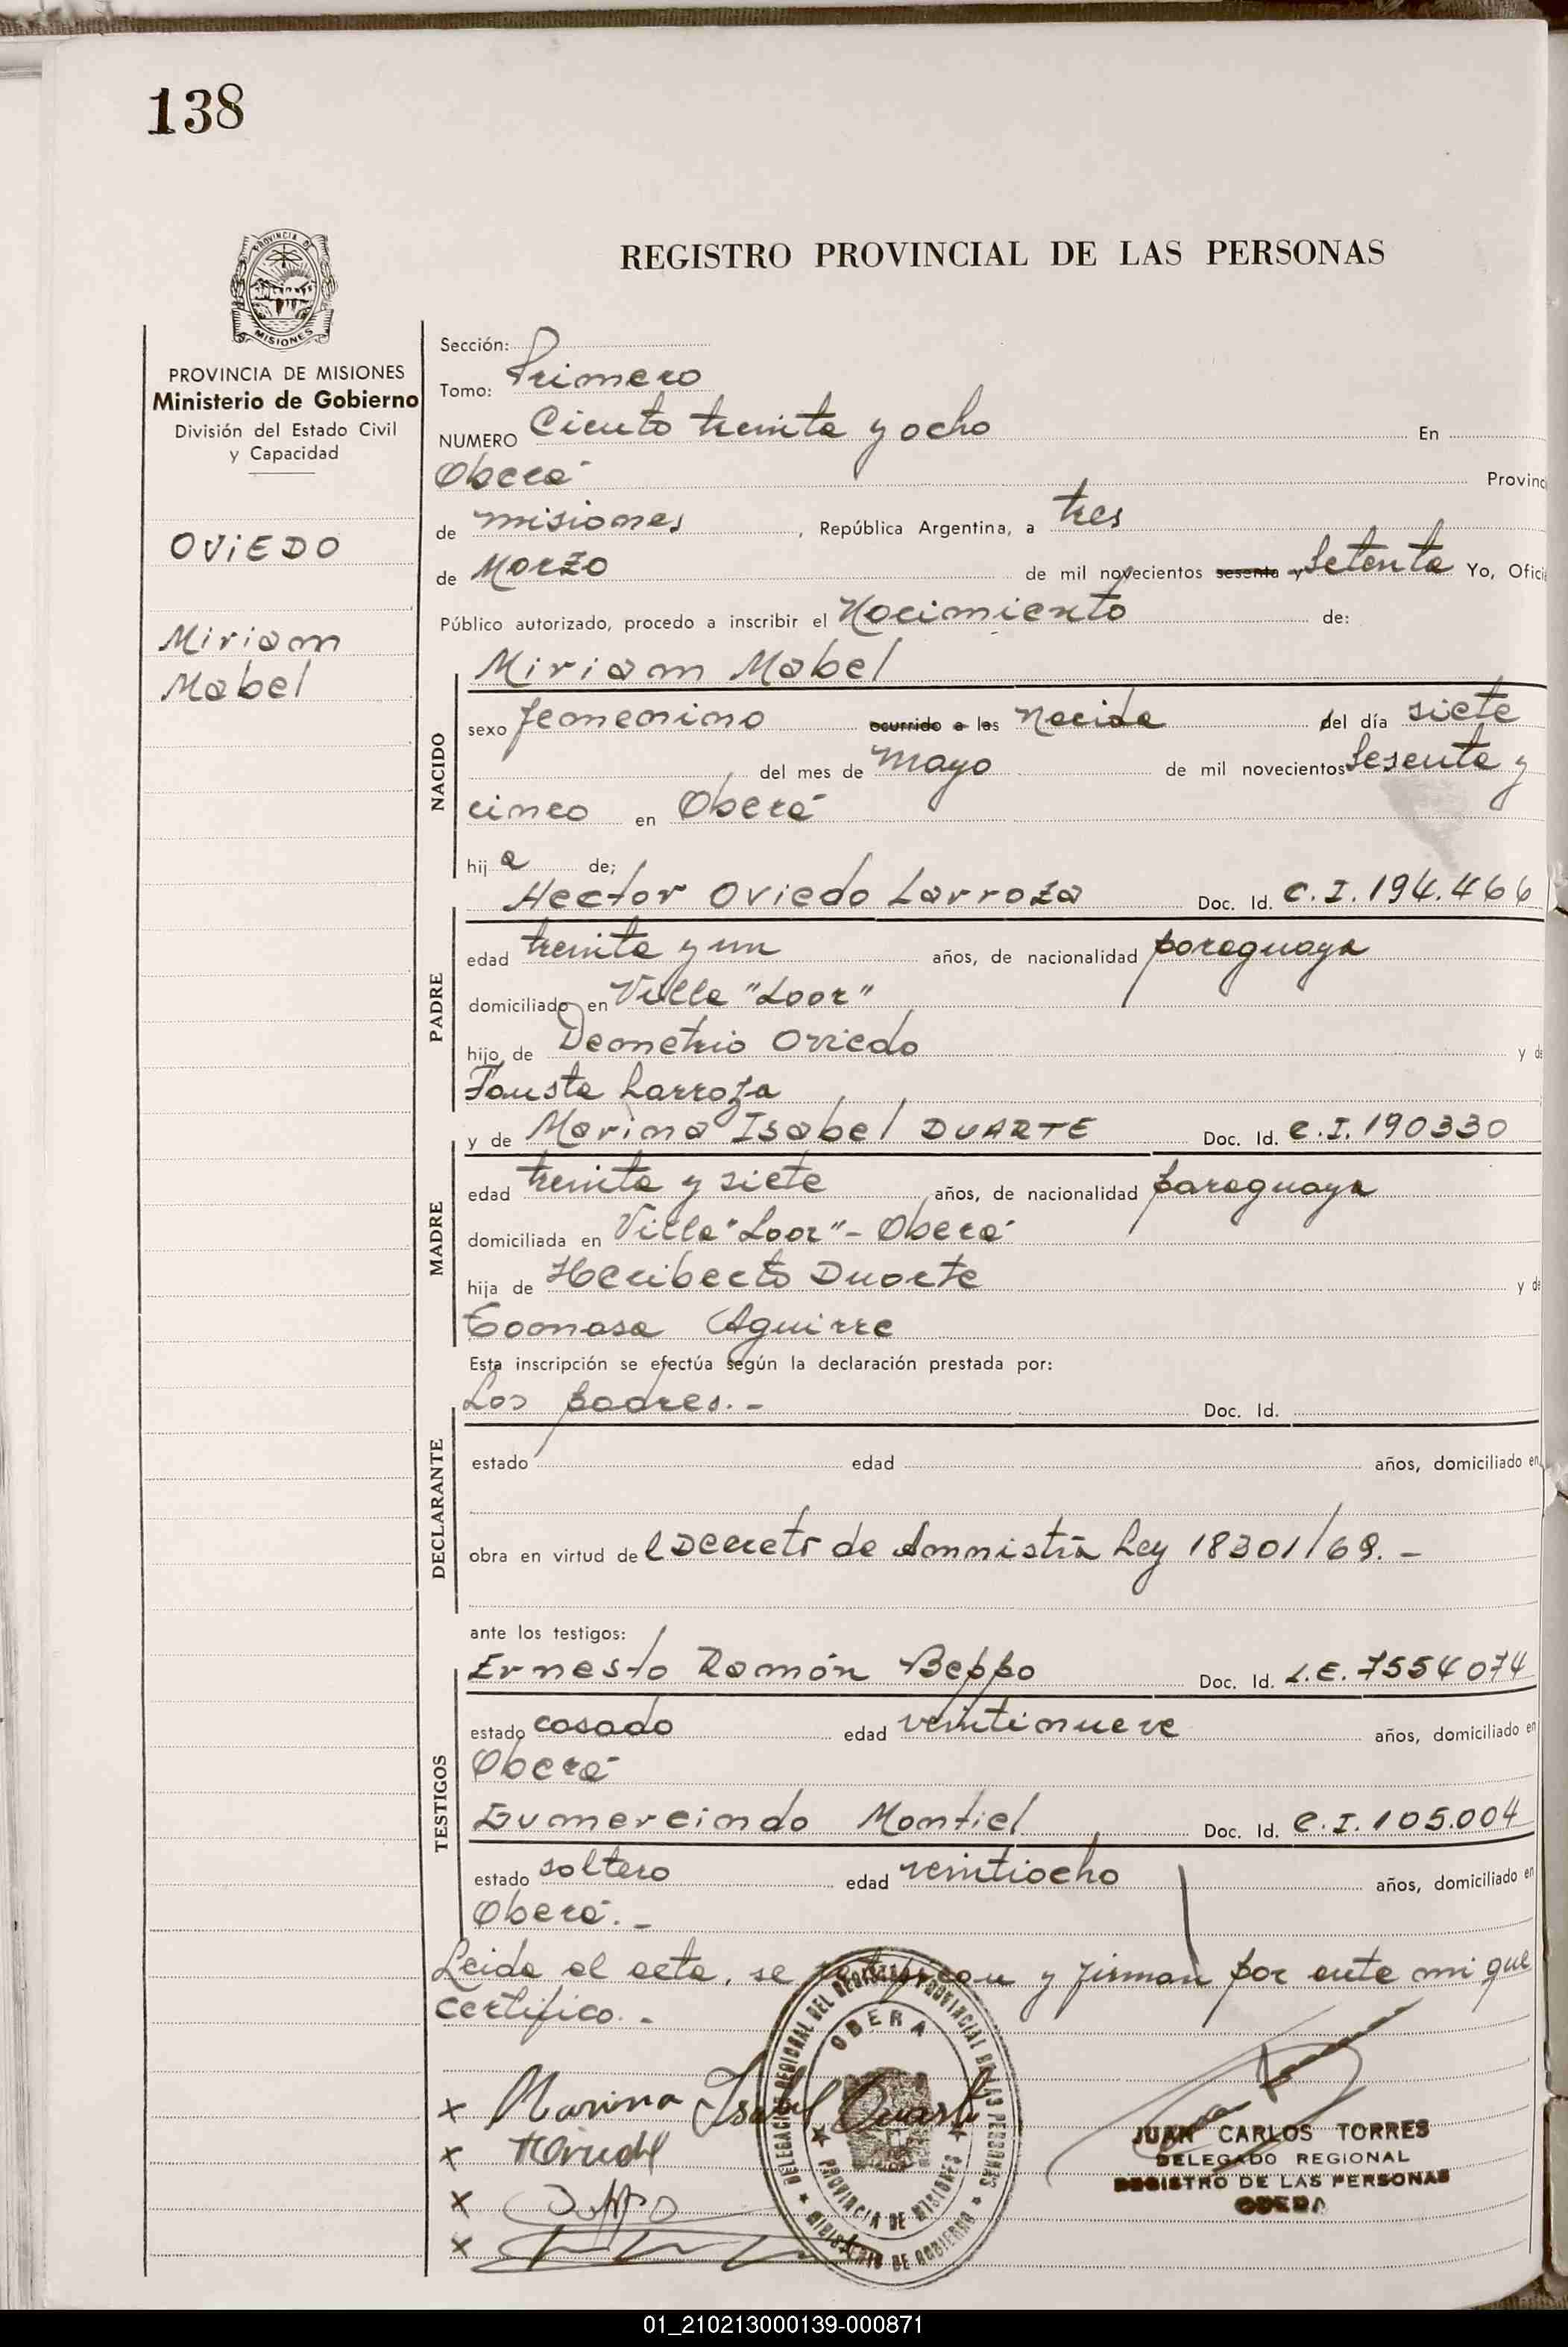 138
PROVINCIA DE
MISIONES
REGISTRO PROVINCIAL DE LAS PERSONAS
PROVINCIA DE MISIONES
Ministerio de Gobierno
División del Estado Civil
y Capacidad
OVIEDO
Miriam
Mabel
Sección:
Tomo: Primero
NUMERO Ciento treinta y ocho En
Oberá Provinc
de misiones, República Argentina, a tres
de Marzo de mil novecientos sesenta y Setenta Yo, Ofici
Público autorizado, procedo a inscribir el Nacimiento de:
Miriam Mabel
NACIDO
sexo femenino ocurrido a las Nacida del día siete
del mes de mayo de mil novecientos Sesenta y
cinco en Oberá
hij a de;
Hector Oviedo Larroza Doc. Id. C.I. 194.466
PADRE
edad treinta y un años, de nacionalidad paraguaya
domiciliado en Villa "Loor"
hijo de Demetrio Oviedo y de
Fausta Larroza
y de Marina Isabel DUARTE Doc. Id. C.I. 190330
MADRE
edad treinta y siete años, de nacionalidad paraguaya
domiciliada en Villa "Loor" - Oberá
hija de Heriberto Duarte y de
Tomasa Aguirre
Esta inscripción se efectúa según la declaración prestada por:
Los padres.- Doc. Id.
DECLARANTE
estado edad años, domiciliado en
obra en virtud de l Decreto de Amnistía Ley 18301/69.-
ante los testigos:
Ernesto Ramón Beppo Doc. Id. L.E. 7554074
TESTIGOS
estado casado edad veintinueve años, domiciliado en
Oberá
Gumercindo Montiel Doc. Id. C.I. 105.004
estado soltero edad veintiocho años, domiciliado en
Oberá.-
Leida el acta, se ratifican y firman por ante mi que
certifico.-
DELEGACION REGIONAL DEL REGISTRO PROVINCIAL DE LAS PERSONAS
OBERA
PROVINCIA DE MISIONES
MINISTERIO DE GOBIERNO
x Marina Isabel Duarte
x
x
x
JUAN CARLOS TORRES
DELEGADO REGIONAL
REGISTRO DE LAS PERSONAS
OBERA
01_210213000139-000871